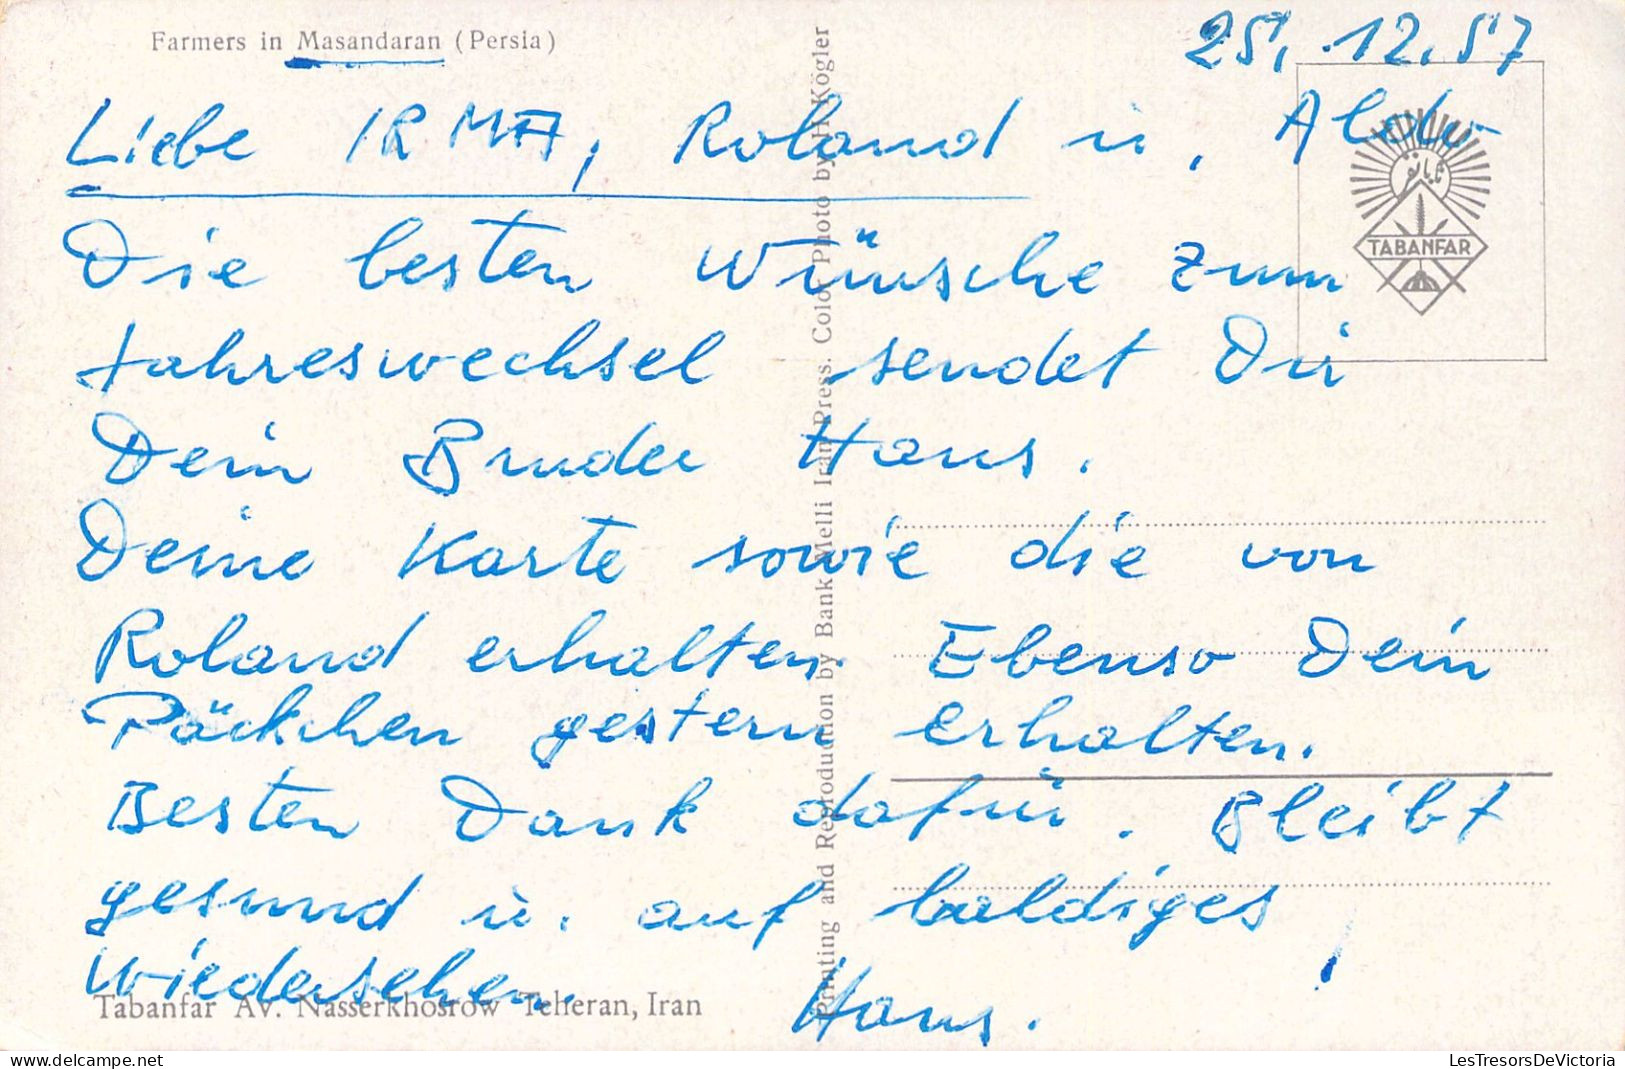 Farmers in Masandaran (Persia)
25. 12. 57
Liebe IRMA, Roland u. Aldo
Die besten Wünsche zum
Jahreswechsel sendet Dir
Dein Bruder Hans.
Deine Karte sowie die von
Roland erhalten. Ebenso Dein
Päckchen gestern erhalten.
Besten Dank dafür. Bleibt
gesund u. auf baldiges
Wiedersehen!
Hans.
Tabanfar Av. Nasserkhosrow Teheran, Iran
Printing and Reproduction by Bank Melli Iran Press. Color Photo by H. Kögler
تابانفر
TABANFAR
LesTresorsDeVictoria